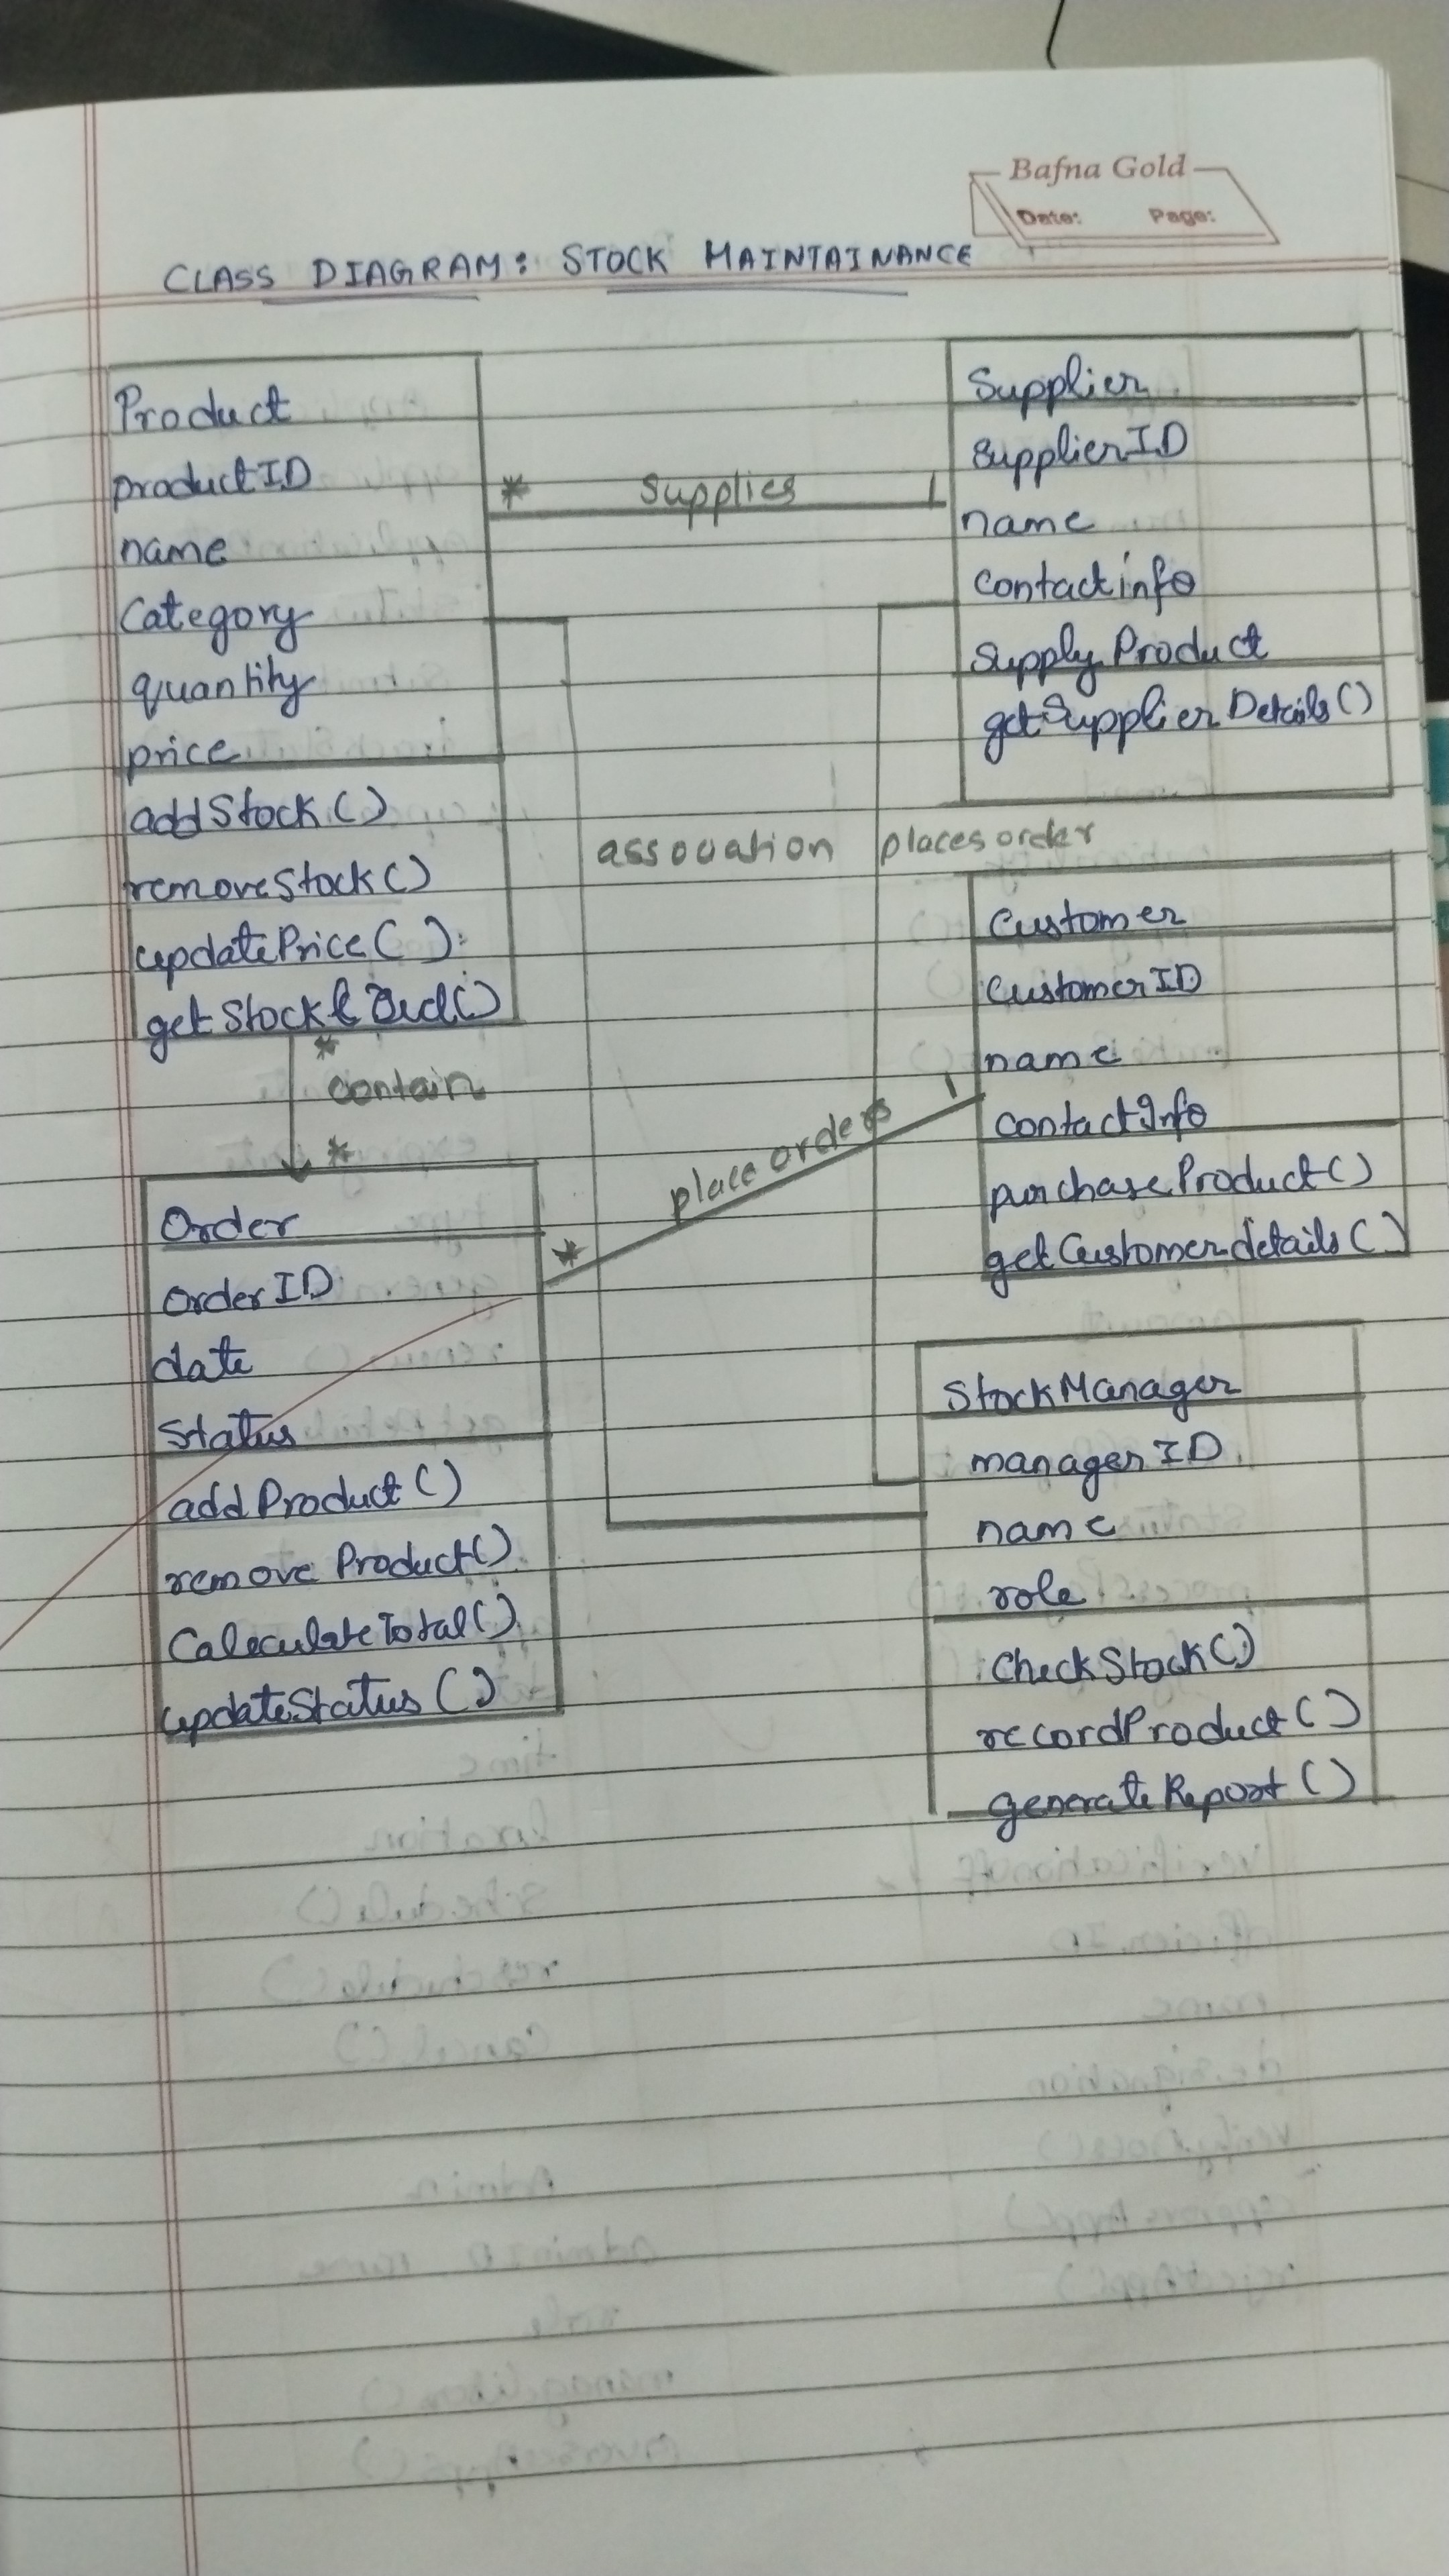 Bafna Gold
Date: Page:
CLASS DIAGRAM: STOCK MAINTAINANCE
Product
productID
name
Category
quantity
price
addStock()
removeStock()
updatePrice():
getStock
* Supplies 1
Supplier
SupplierID
name
contactinfo
Supply Product
getSupplierDetails()
association
places order
Customer
CustomerID
name
ContactInfo
purchaseProduct()
getCustomerdetails()
*
contain
*
place orders
1
*
Order
OrderID
date
Status
addProduct()
remove Product()
CaleculateTotal()
updateStatus()
StockManager
managerID
name
role
CheckStock()
recordProduct()
generateReport()